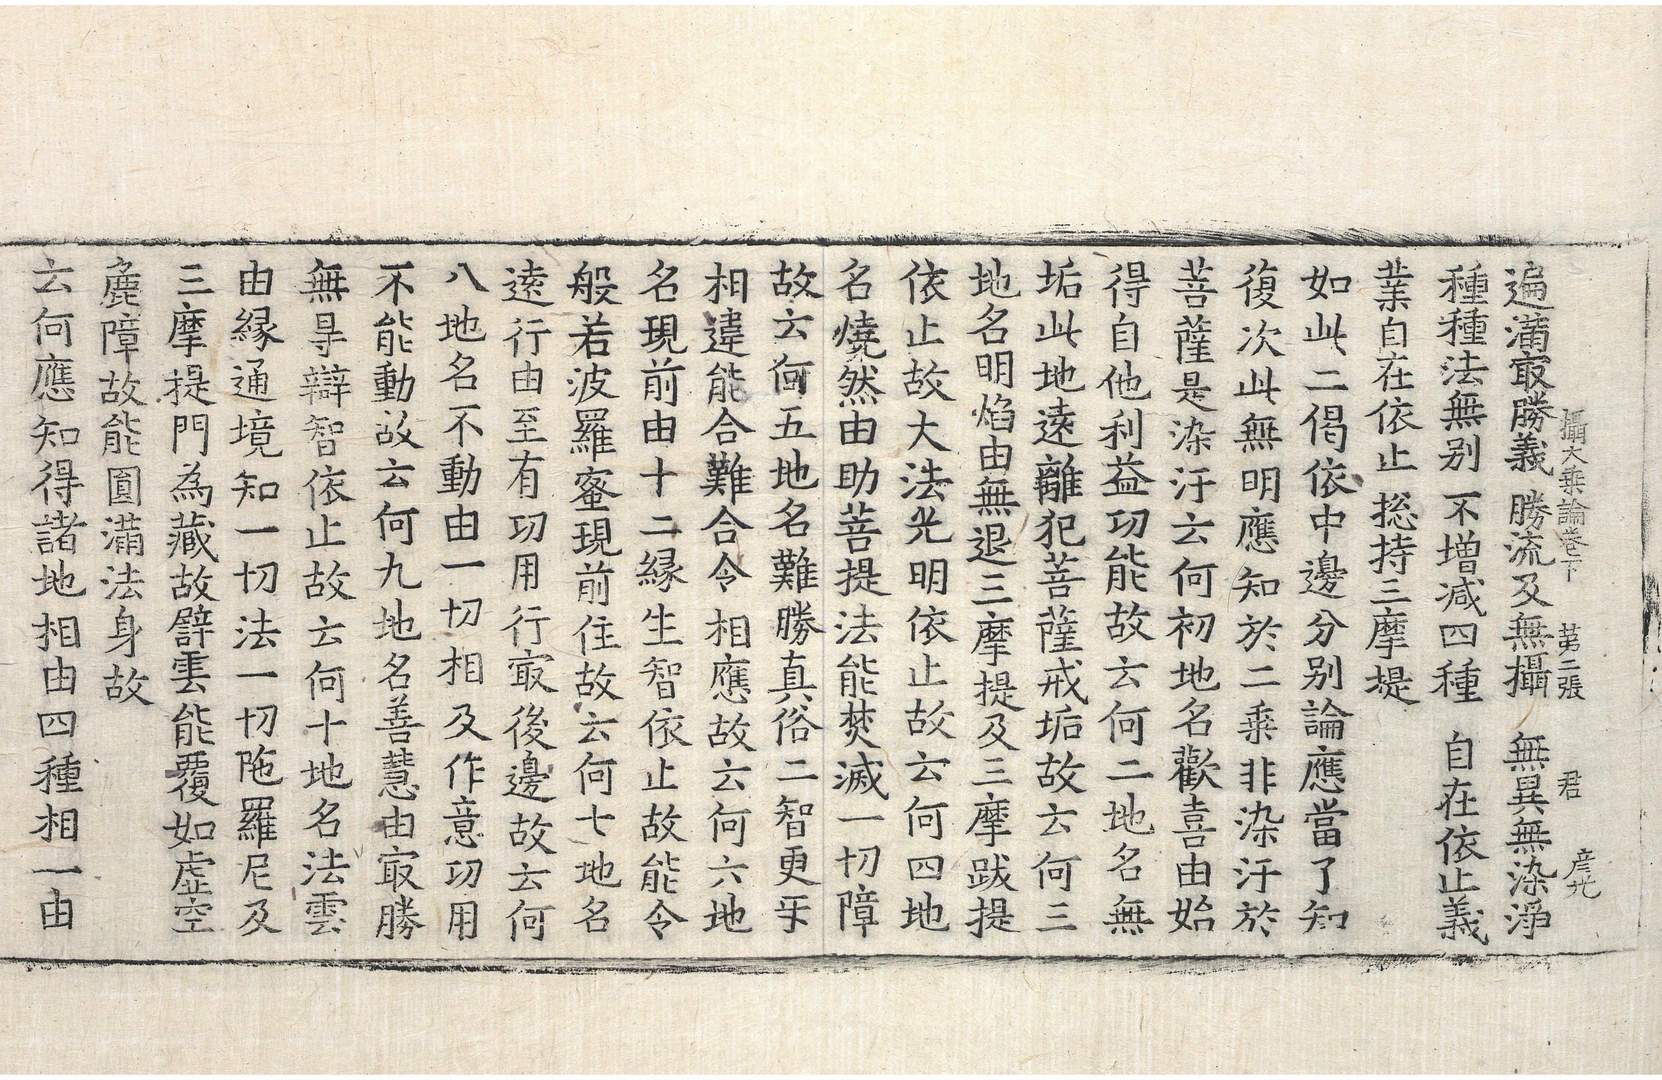 攝大乗論卷下　第二張　君　彦光
遍滿㝡勝義　勝流及無攝　無異無染淨
種種法無别　不増减四種　自在依止義
業自在依止　捴持三摩提
如此二偈依中邊分别論應當了知
復次此無明應知於二乗非染汙於
菩薩是染汙云何初地名歡喜由始
得自他利益功能故云何二地名無
垢此地遠離犯菩薩戒垢故云何三
地名明焰由無退三摩提及三摩跋提
依止故大法光明依止故云何四地
名燒然由助菩提法能焚滅一切障
故云何五地名難勝真俗二智更㸦
相違能合難合令相應故云何六地
名現前由十二縁生智依止故能令
般若波羅蜜現前住故云何七地名
遠行由至有功用行㝡後邊故云何
八地名不動由一切相及作意功用
不能動故云何九地名善慧由㝡勝
無㝵辯智依止故云何十地名法雲
由縁通境知一切法一切陁羅尼及
三摩提門為藏故譬雲能覆如虛空
麁障故能圓滿法身故
云何應知得諸地相由四種相一由